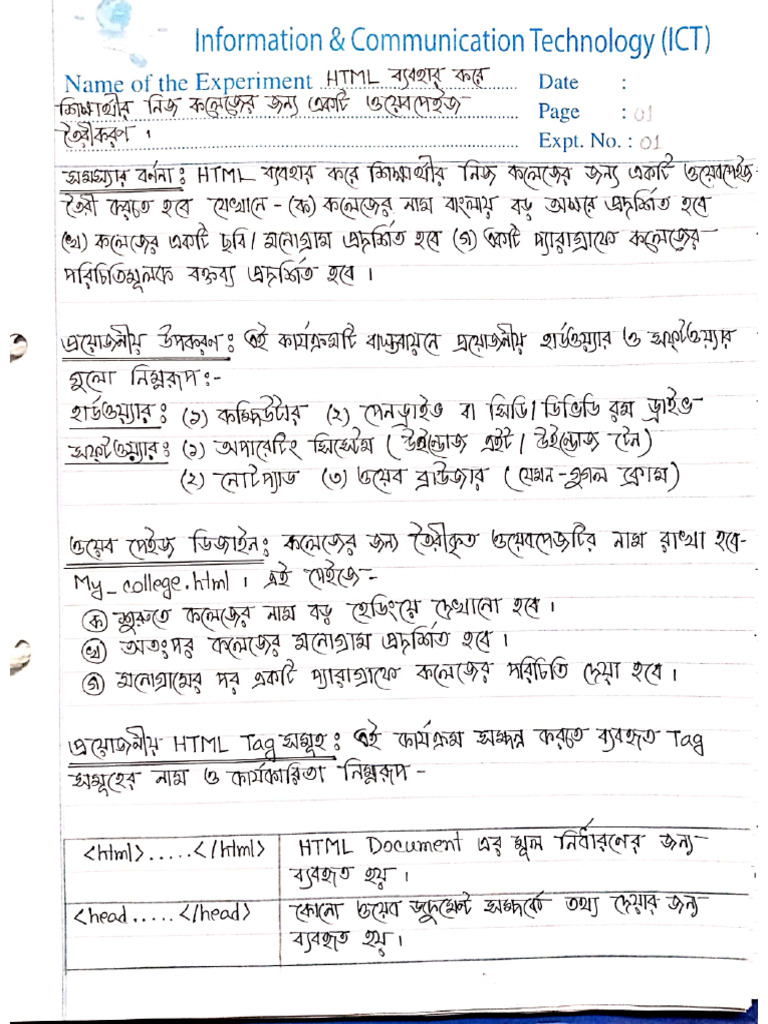 Information & Communication Technology (ICT)
Name of the Experiment HTML ব্যবহার করে Date :
শিক্ষার্থীর নিজ কলেজের জন্য একটি ওয়েবপেইজ Page : 01
তৈরীকরণ। Expt. No. : 01
সমস্যার বর্ণনা: HTML ব্যবহার করে শিক্ষার্থীর নিজ কলেজের জন্য একটি ওয়েবপেইজ-
তৈরী করতে হবে যেখানে - (ক) কলেজের নাম বাংলায় বড় অক্ষরে প্রদর্শিত হবে
(খ) কলেজের একটি ছবি/মনোগ্রাম প্রদর্শিত হবে (গ) একটি প্যারাগ্রাফে কলেজের
পরিচিতিমূলক বক্তব্য প্রদর্শিত হবে।
প্রয়োজনীয় উপকরণ: এই কার্যক্রমটি বাস্তবায়নে প্রয়োজনীয় হার্ডওয়্যার ও সফ্টওয়্যার
গুলো নিম্নরূপ:-
হার্ডওয়্যার: (১) কম্পিউটার (২) পেনড্রাইভ বা সিডি/ডিভিডি রম ড্রাইভ
সফ্টওয়্যার: (১) অপারেটিং সিস্টেম (উইন্ডোজ এইট/উইন্ডোজ টেন)
(২) নোটপ্যাড (৩) ওয়েব ব্রাউজার (যেমন-গুগল ক্রোম)
ওয়েব পেইজ ডিজাইন: কলেজের জন্য তৈরীকৃত ওয়েবপেজটির নাম রাখা হবে-
My_college.html। এই পেইজে-
(ক) শুরুতে কলেজের নাম বড় হেডিংয়ে দেখানো হবে।
(খ) অতঃপর কলেজের মনোগ্রাম প্রদর্শিত হবে।
(গ) মনোগ্রামের পর একটি প্যারাগ্রাফে কলেজের পরিচিতি দেয়া হবে।
প্রয়োজনীয় HTML Tag সমূহ: এই কার্যক্রম সম্পন্ন করতে ব্যবহৃত Tag
সমূহের নাম ও কার্যকারিতা নিম্নরূপ -
<html>.....</html> HTML Document এর মূল নির্ধারণের জন্য
ব্যবহৃত হয়।
<head.....</head> কোনো ওয়েব ডকুমেন্ট সম্পর্কে তথ্য দেয়ার জন্য
ব্যবহৃত হয়।